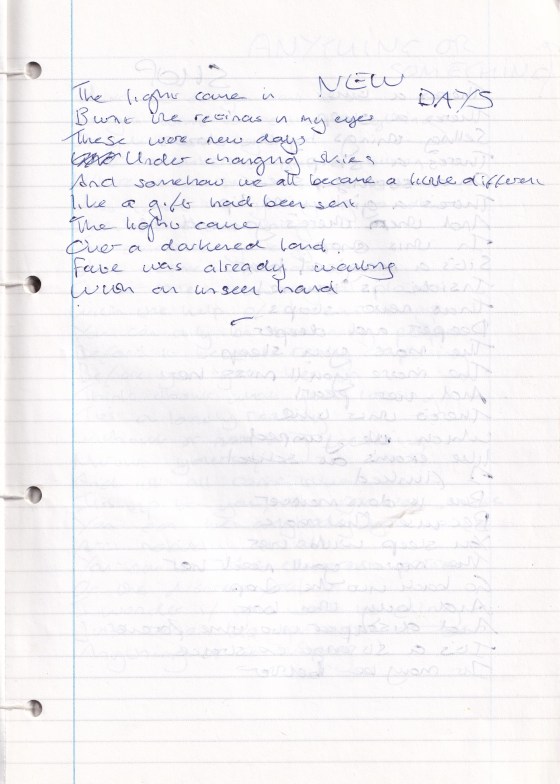 NEW DAYS
The light came in
Burnt the retinas in my eyes
These were new days
Under changing skies
And somehow we all became a little different
Like a gift had been sent
The light came
Over a darkened land.
Fate was already waiting
With an unseen hand